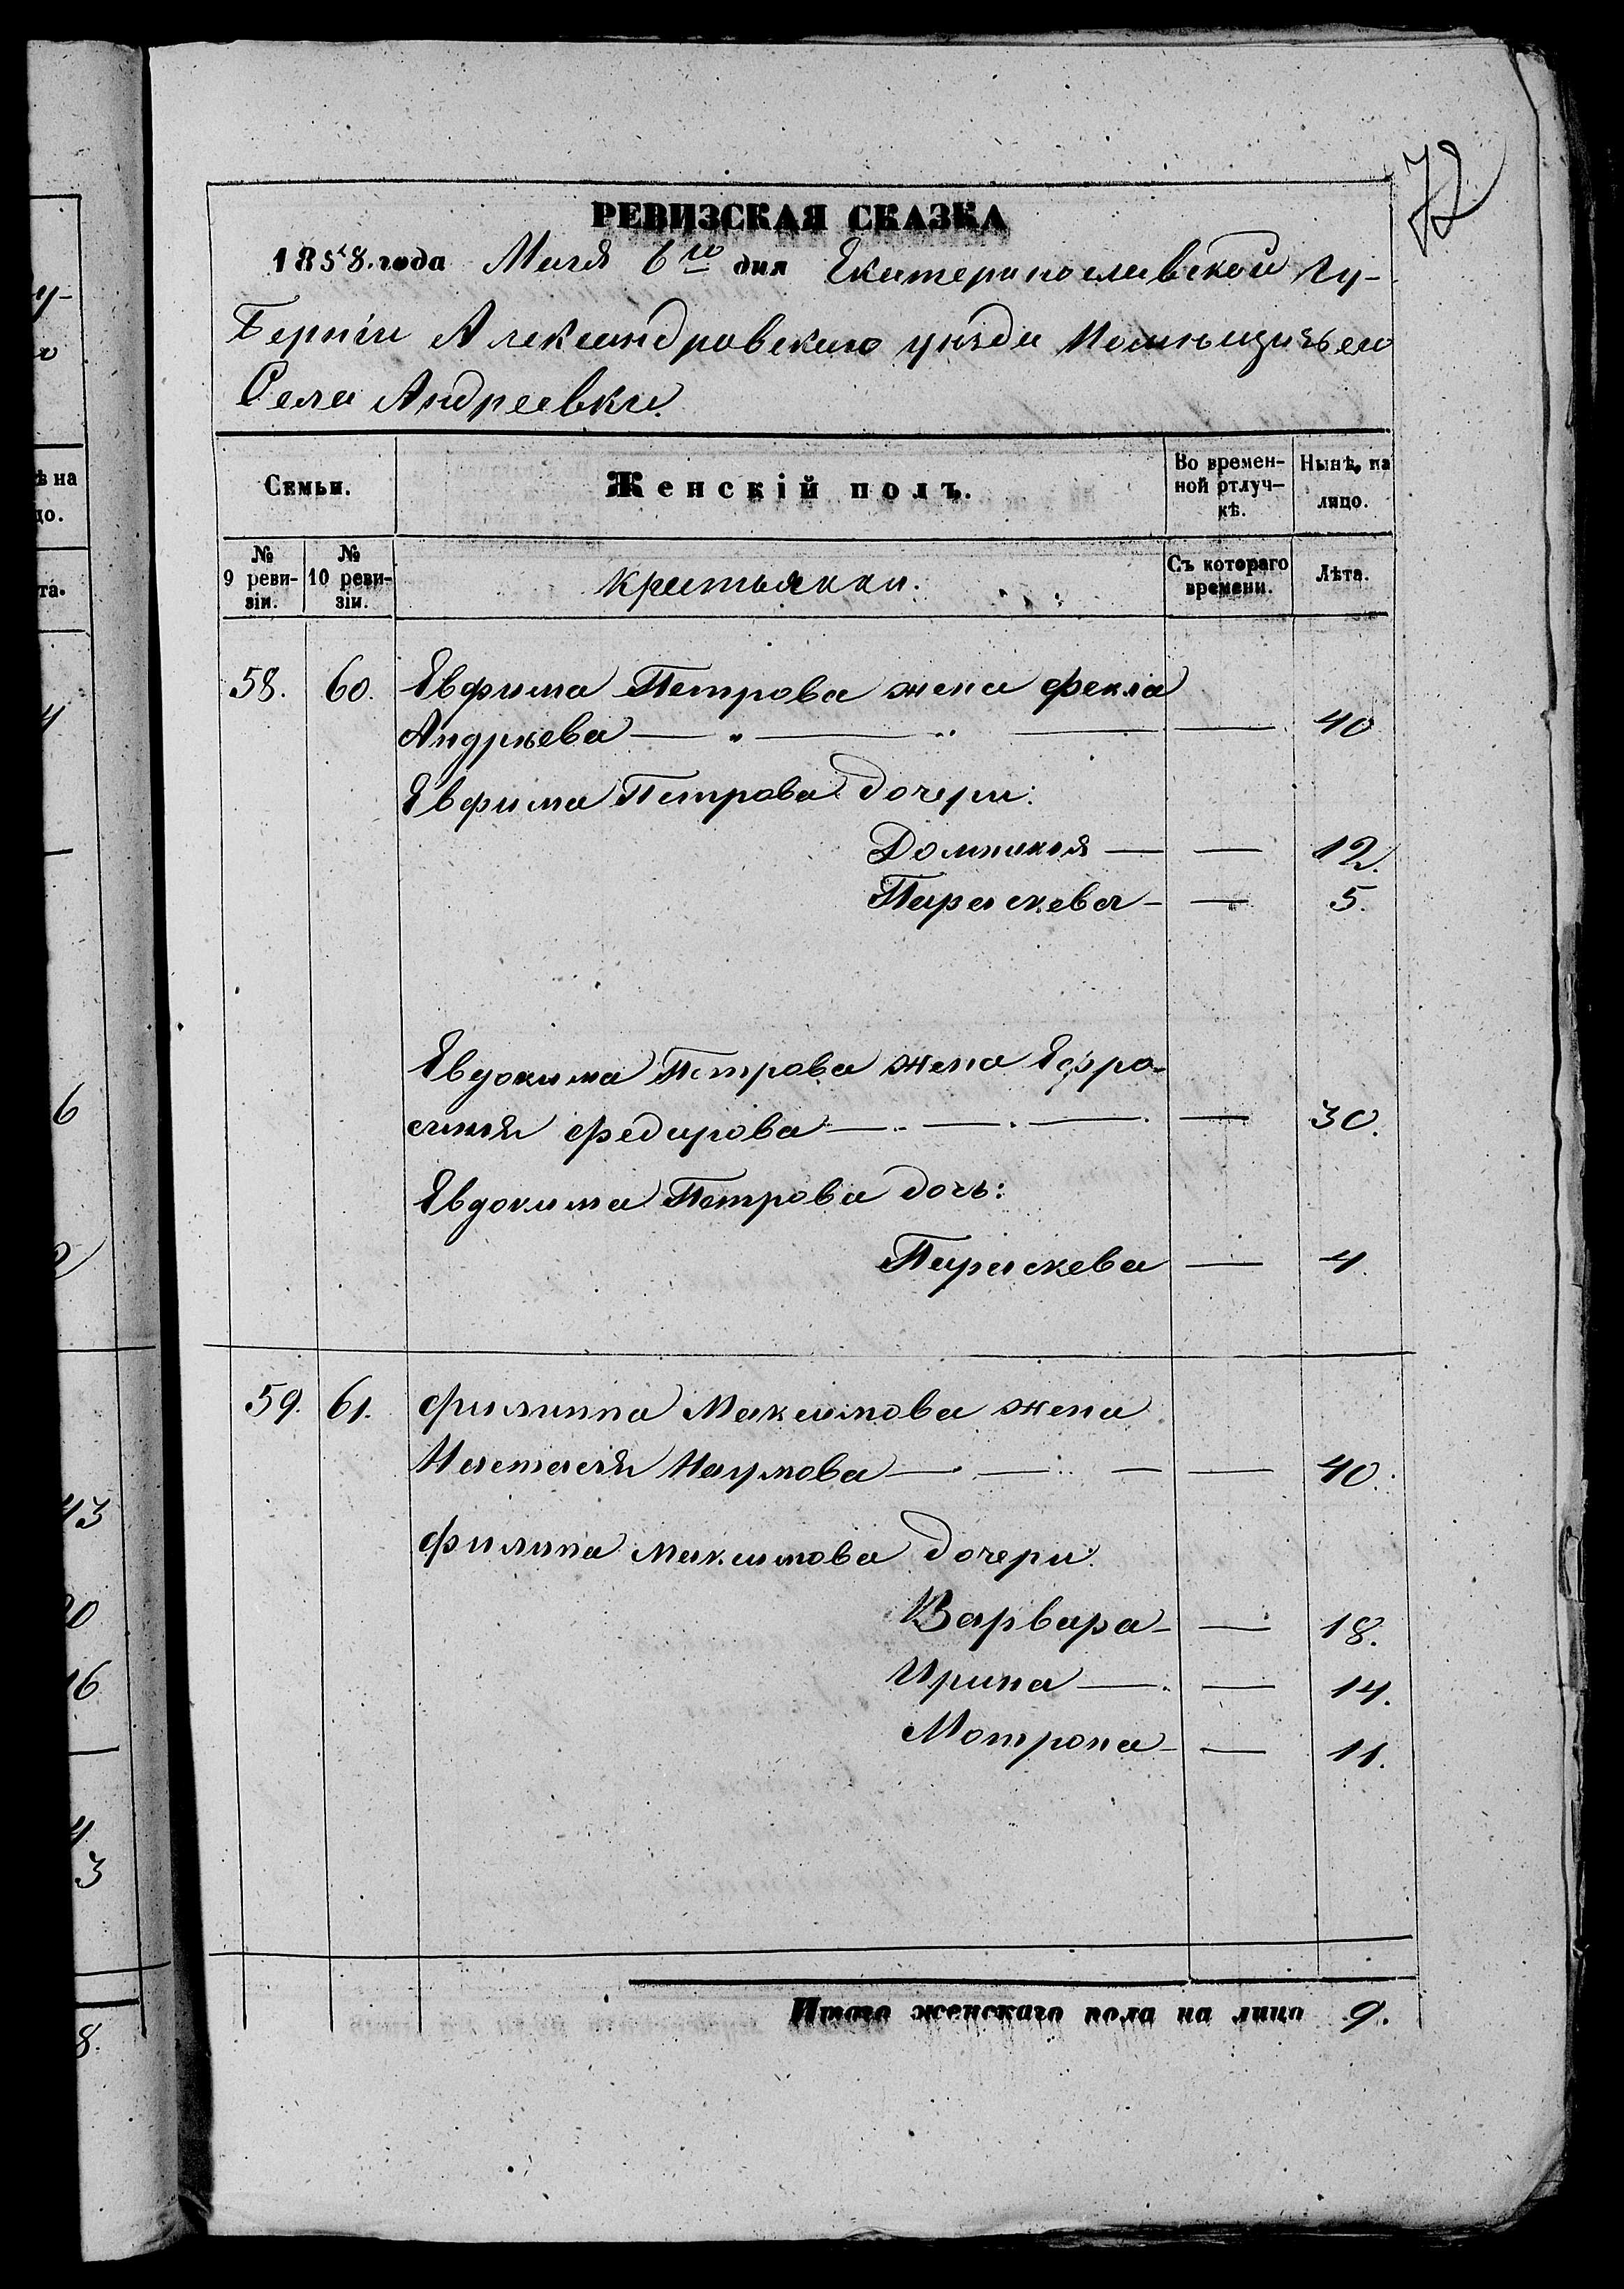 72
РЕВИЗСКАЯ СКАЗКА
1858. года Мая 6го дня Екатеринославской гу-
Берніи Александровскаго уѣзда Помѣщичьего
Села Андреевки.
Семьи.
Женскій полъ.
Во времен-
ной отлуч-
кѣ.
Нынѣ на
лицо.
№
9 реви-
зіи.
№
10 реви-
зіи.
крестьянки.
Съ котораго
времени.
Лѣта.
58. 60. Евфима Петрова жена Фекла
Андрѣева — „ — „ — — 40
Евфима Петрова дочери:
Домникия — — 12.
Параскева — — 5.
Евдокима Петрова жена Ефро-
синия Федирова — — — — 30.
Евдокима Петрова дочь:
Параскева — 4.
59. 61. Филиппа Максимова жена
Настасия Наумова — — — — 40.
Филипа Максимова дочери.
Варвара — — 18.
Ирина — — 14.
Мотрона — — 11.
Итого женскаго пола на лицо 9.
у-
о
ѣ на
цо.
та.
4
6
43
20
16
4
3
8.